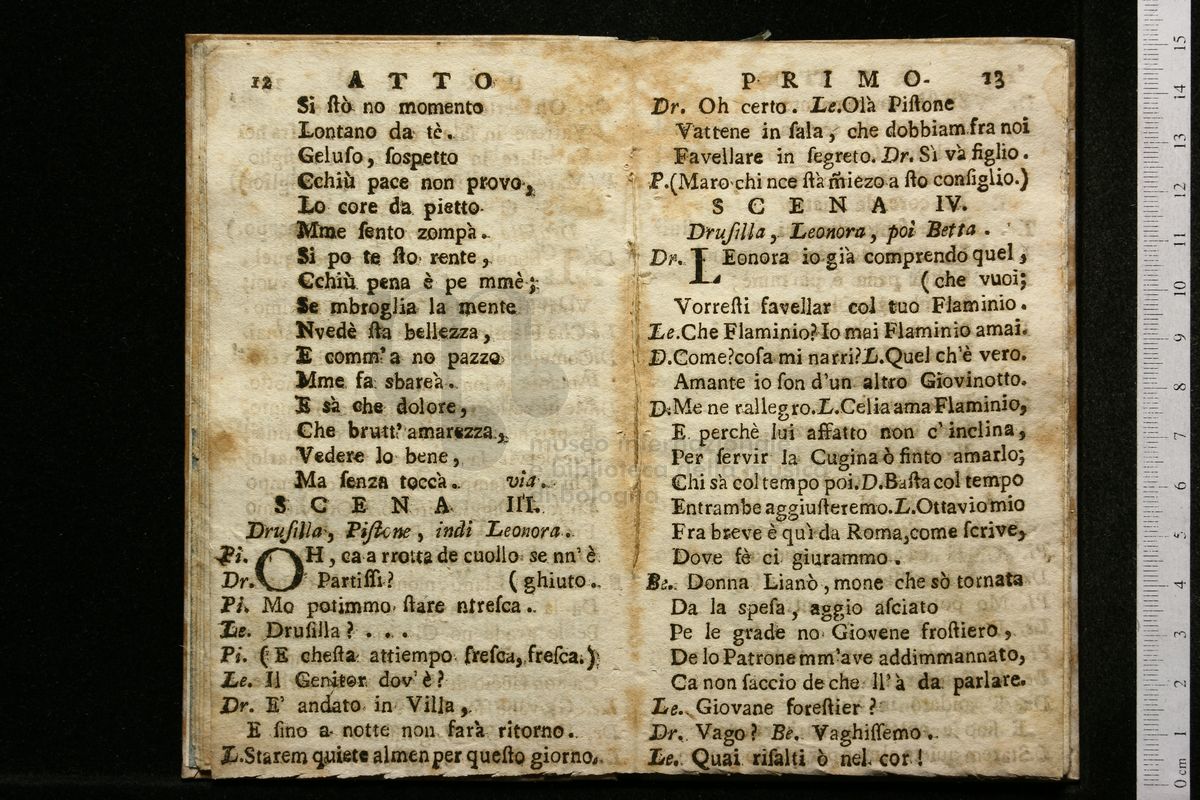 12 ATTO
Si stò no momento
Lontano da tè.
Geluso, sospetto
Cchiù pace non provo,
Lo core da pietto
Mme sento zompà.
Si po te sto rente,
Cchiù pena è pe mmè;
Se mbroglia la mente
Nvedè sta bellezza,
E comm'a no pazzo
Mme fa sbareà.
E sà che dolore,
Che brutt'amarezza,
Vedere lo bene,
Ma senza toccà. via.
SCENA III.
Drusilla, Pistone, indi Leonora.
Pi. OH, ca a rrotta de cuollo se nn'è
Dr. Partissi? (ghiuto.
Pi. Mo potimmo stare ntresca.
Le. Drusilla? ...
Pi. (E chesta attiempo fresca, fresca.)
Le. Il Genitor dov'è?
Dr. E' andato in Villa,
E sino a notte non farà ritorno.
L.Starem quiete almen per questo giorno.
PRIMO. 13
Dr. Oh certo. Le.Olà Pistone
Vattene in sala, che dobbiam fra noi
Favellare in segreto. Dr. Sì và figlio.
P.(Maro chi nce stà m̃iezo a sto consiglio.)
SCENA IV.
Drusilla, Leonora, poi Betta.
Dr. LEonora io già comprendo quel,
(che vuoi;
Vorresti favellar col tuo Flaminio.
Le.Che Flaminio? Io mai Flaminio amai.
D.Come? cosa mi narri? L.Quel ch'è vero.
Amante io son d'un altro Giovinotto.
D.Me ne rallegro. L.Celia ama Flaminio,
E perchè lui affatto non c'inclina,
Per servir la Cugina ò finto amarlo;
Chi sà col tempo poi. D.Basta col tempo
Entrambe aggiusteremo. L.Ottavio mio
Fra breve è quì da Roma, come scrive,
Dove fè ci giurammo.
Be. Donna Lianò, mone che sò tornata
Da la spesa, aggio asciato
Pe le grade no Giovene frostiero,
De lo Patrone mm'ave addimmannato,
Ca non saccio de che ll'à da parlare.
Le. Giovane forestier?
Dr. Vago? Be. Vaghissemo.
Le. Quai risalti ò nel cor!
museo internazionale
e biblioteca della musica
di bologna
15
14
13
12
11
10
9
8
7
6
5
4
3
2
1
0 cm